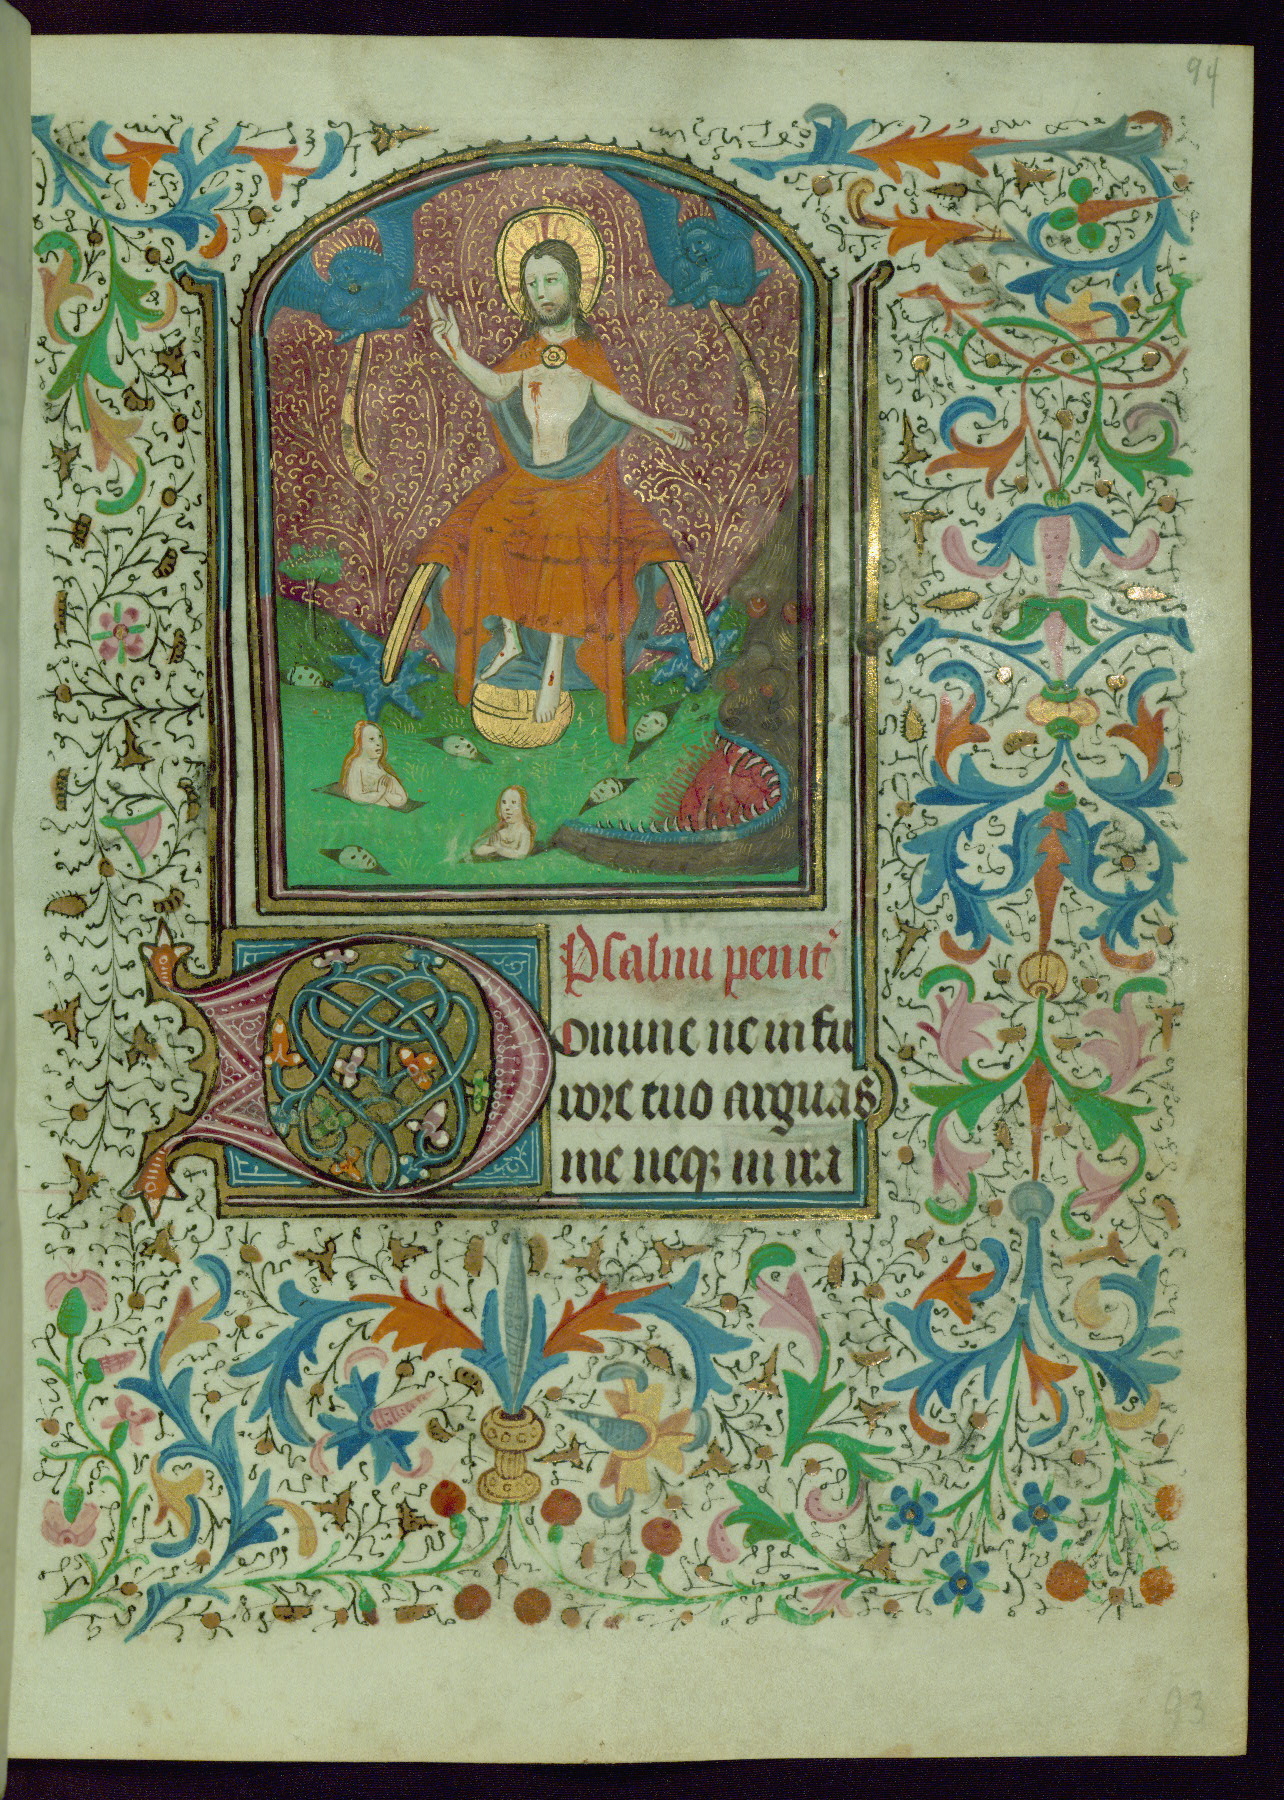 94
Psalmu penit'
Domine ne in fu
rore tuo arguas
me neq3 in ira
93